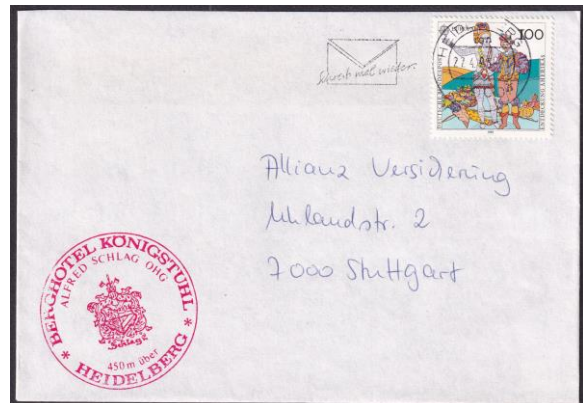 Schreib mal wieder.
100
Allianz Versicherung
Uhlandstr. 2
7000 Stuttgart
* BERGHOTEL KÖNIGSTUHL *
ALFRED SCHLAG OHG
Schlage
450 m über
HEIDELBERG